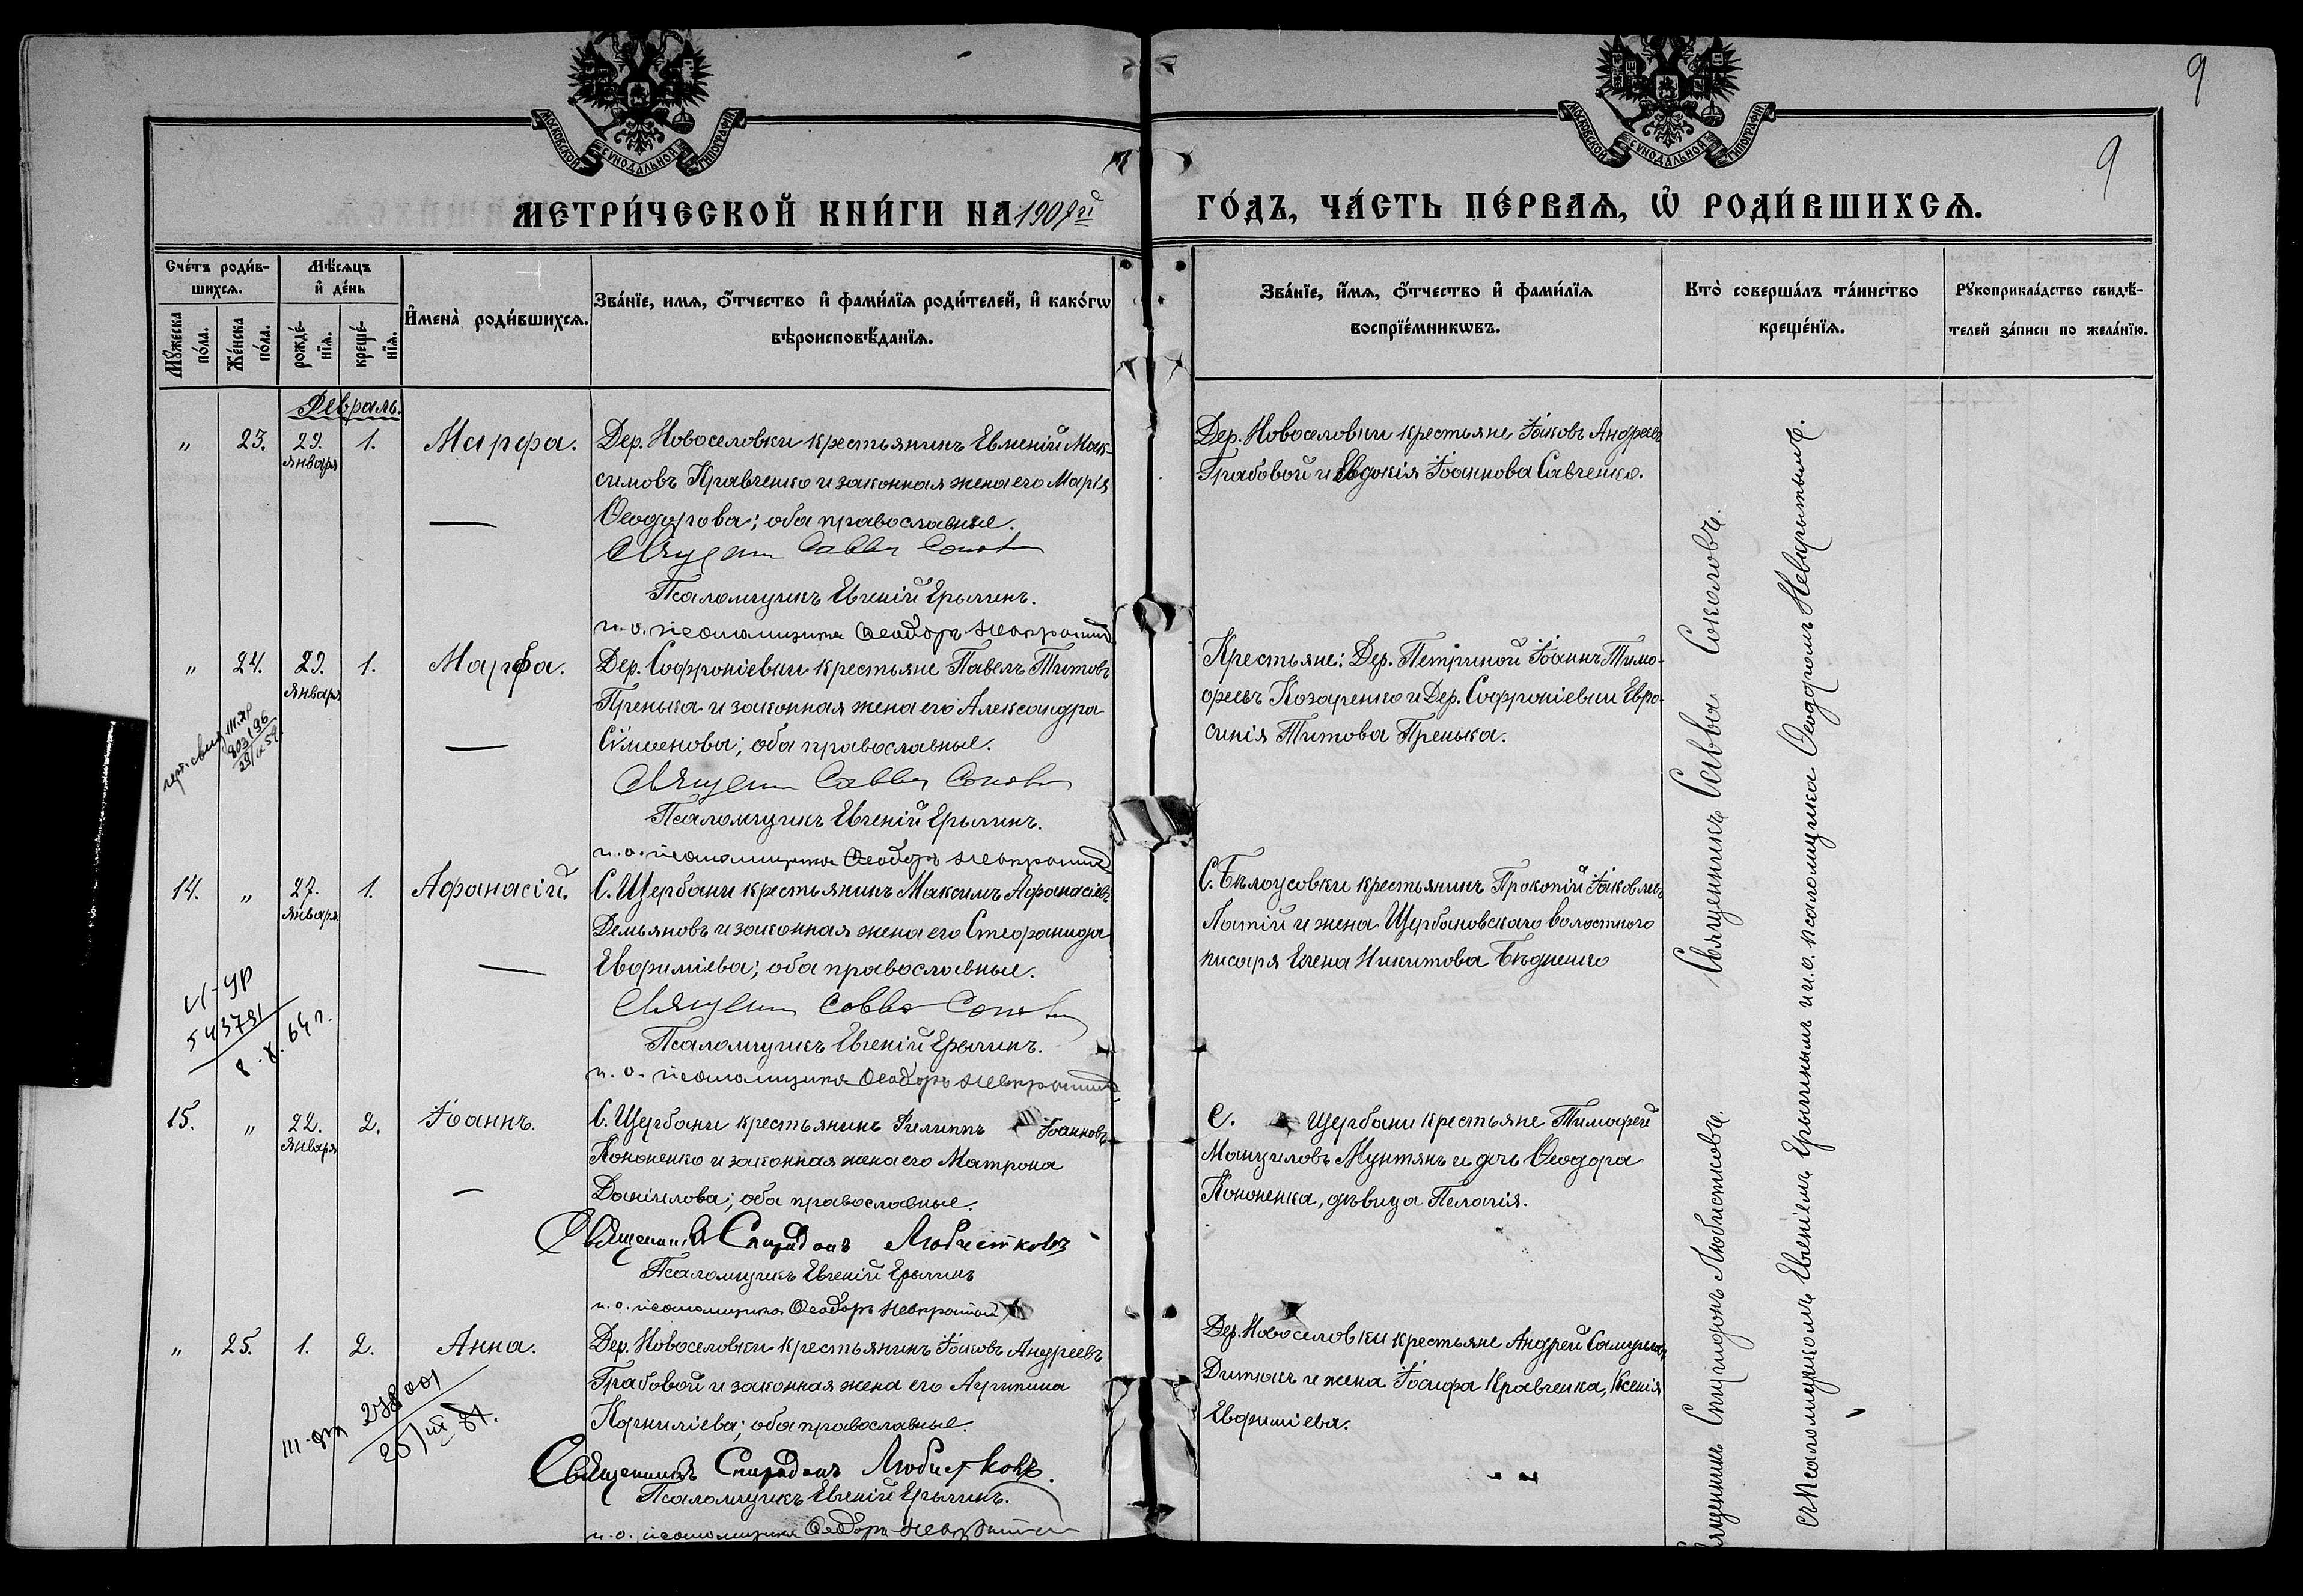 9
9
МОСКОВСКОЙ СѴНОДАЛЬНОЙ ТИПОГРАФІИ
МОСКОВСКОЙ СѴНОДАЛЬНОЙ ТИПОГРАФІИ
МЕТРИ́ЧЕСКОЙ КНИ́ГИ НА 1907й ГО́ДЪ, ЧА́СТЬ ПЕ́РВАѦ, Ѡ҆ РОДИ́ВШИХСѦ.
Сче́тъ роди́в-
шихсѧ.
Мꙋ́жеска по́ла.
Же́нска по́ла.
Мѣ́сѧцъ
и҆ де́нь
рожде́-
нїѧ.
креще́-
нїѧ.
И҆мена̀ роди́вшихсѧ.
Зва́нїе, имѧ, ѻ҆́тчество и҆ фами́лїѧ роди́телей, и҆ како́гѡ
вѣроисповѣ́данїѧ.
Зва́нїе, и҆́мѧ, ѻ҆́тчество и҆ фами́лїѧ
воспрїе́мникѡвъ.
Кто̀ соверша́лъ та́инство
креще́нїѧ.
Рꙋкоприкла́дство свидѣ́-
телей за́писи по жела́нїю.
Февраль.
" 23. 29. января 1. Марфа.
Дер. Новоселовки крестьянинъ Евмений Мак-
симовъ Кравченко и законная жена его Марія
Ѳеодорова; оба православные.
Священ Савва Сокол
Псаломщикъ Евгеній Ерычинъ.
и. о. псаломщика Ѳеодоръ Невкрытый
Дер. Новоселовки крестьяне Іаковъ Андреевъ
Грабовой и Евдокія Іоаннова Савченко.
" 24. 29. января 1. Марѳа.
Дер. Софроніевки крестьяне Павелъ Титовъ
Пренька и законная жена его Александра
Сѵмеонова; оба православные.
Священ Савва Сокол
Псаломщикъ Евгеній Ерычинъ.
и. о. псаломщика Ѳеодоръ Невкрытый
Крестьяне: Дер. Петриной Іоаннъ Тимо-
феевъ Козаренко и Дер. Софроніевки Евро-
синія Титова Пренька.
14. " 27. января 1. Афанасій.
С. Щербани крестьянинъ Максимъ Афанасіевъ
Демьяновъ и законная жена его Стефанида
Евфиміева; оба православные.
Священ Савва Сокол
Псаломщикъ Евгеній Ерычинъ.
и. о. псаломщика Ѳеодоръ Невкрытый
С. Бѣлоусовки крестьянинъ Прокопій Іаковлевъ
Латій и жена Щербановскаго волостного
писаря Елена Никитова Бѣдненко
543791
8. X. 64 г.
15. " 22. января 2. Іоаннъ.
С. Щербани крестьянинъ Филиппъ Іоанновъ
Кононенко и законная жена его Матрона
Даніилова; оба православные.
Священникъ Спиридонъ Любистковъ
Псаломщикъ Евгеній Ерычинъ
и. о. псаломщика Ѳеодоръ Невкрытый
С. Щербани крестьяне Тимофей
Мануиловъ Мунтянъ и дчь Ѳеодора
Кононенка, дѣвица Пелагія.
" 25. 1. 2. Анна.
Дер. Новоселовки крестьянинъ Іаковъ Андреевъ
Грабовой и законная жена его Агрипина
Корниліева; оба православные.
Священникъ Спиридонъ Любистковъ.
Псаломщикъ Евгеній Ерычинъ.
и. о. псаломщика Ѳеодоръ Невкрытый
Дер. Новоселовки крестьяне Андрей Самуиловъ
Дитюкъ и жена Іосифа Кравченка, Ксенія
Евфиміева.
278001
Священникъ Савва Соколовъ.
Священникъ Спиридонъ Любистковъ.
съ Псаломщикомъ Евгеніемъ Ерычинымъ и и. о. псаломщика Ѳеодромъ Невкрытымъ.